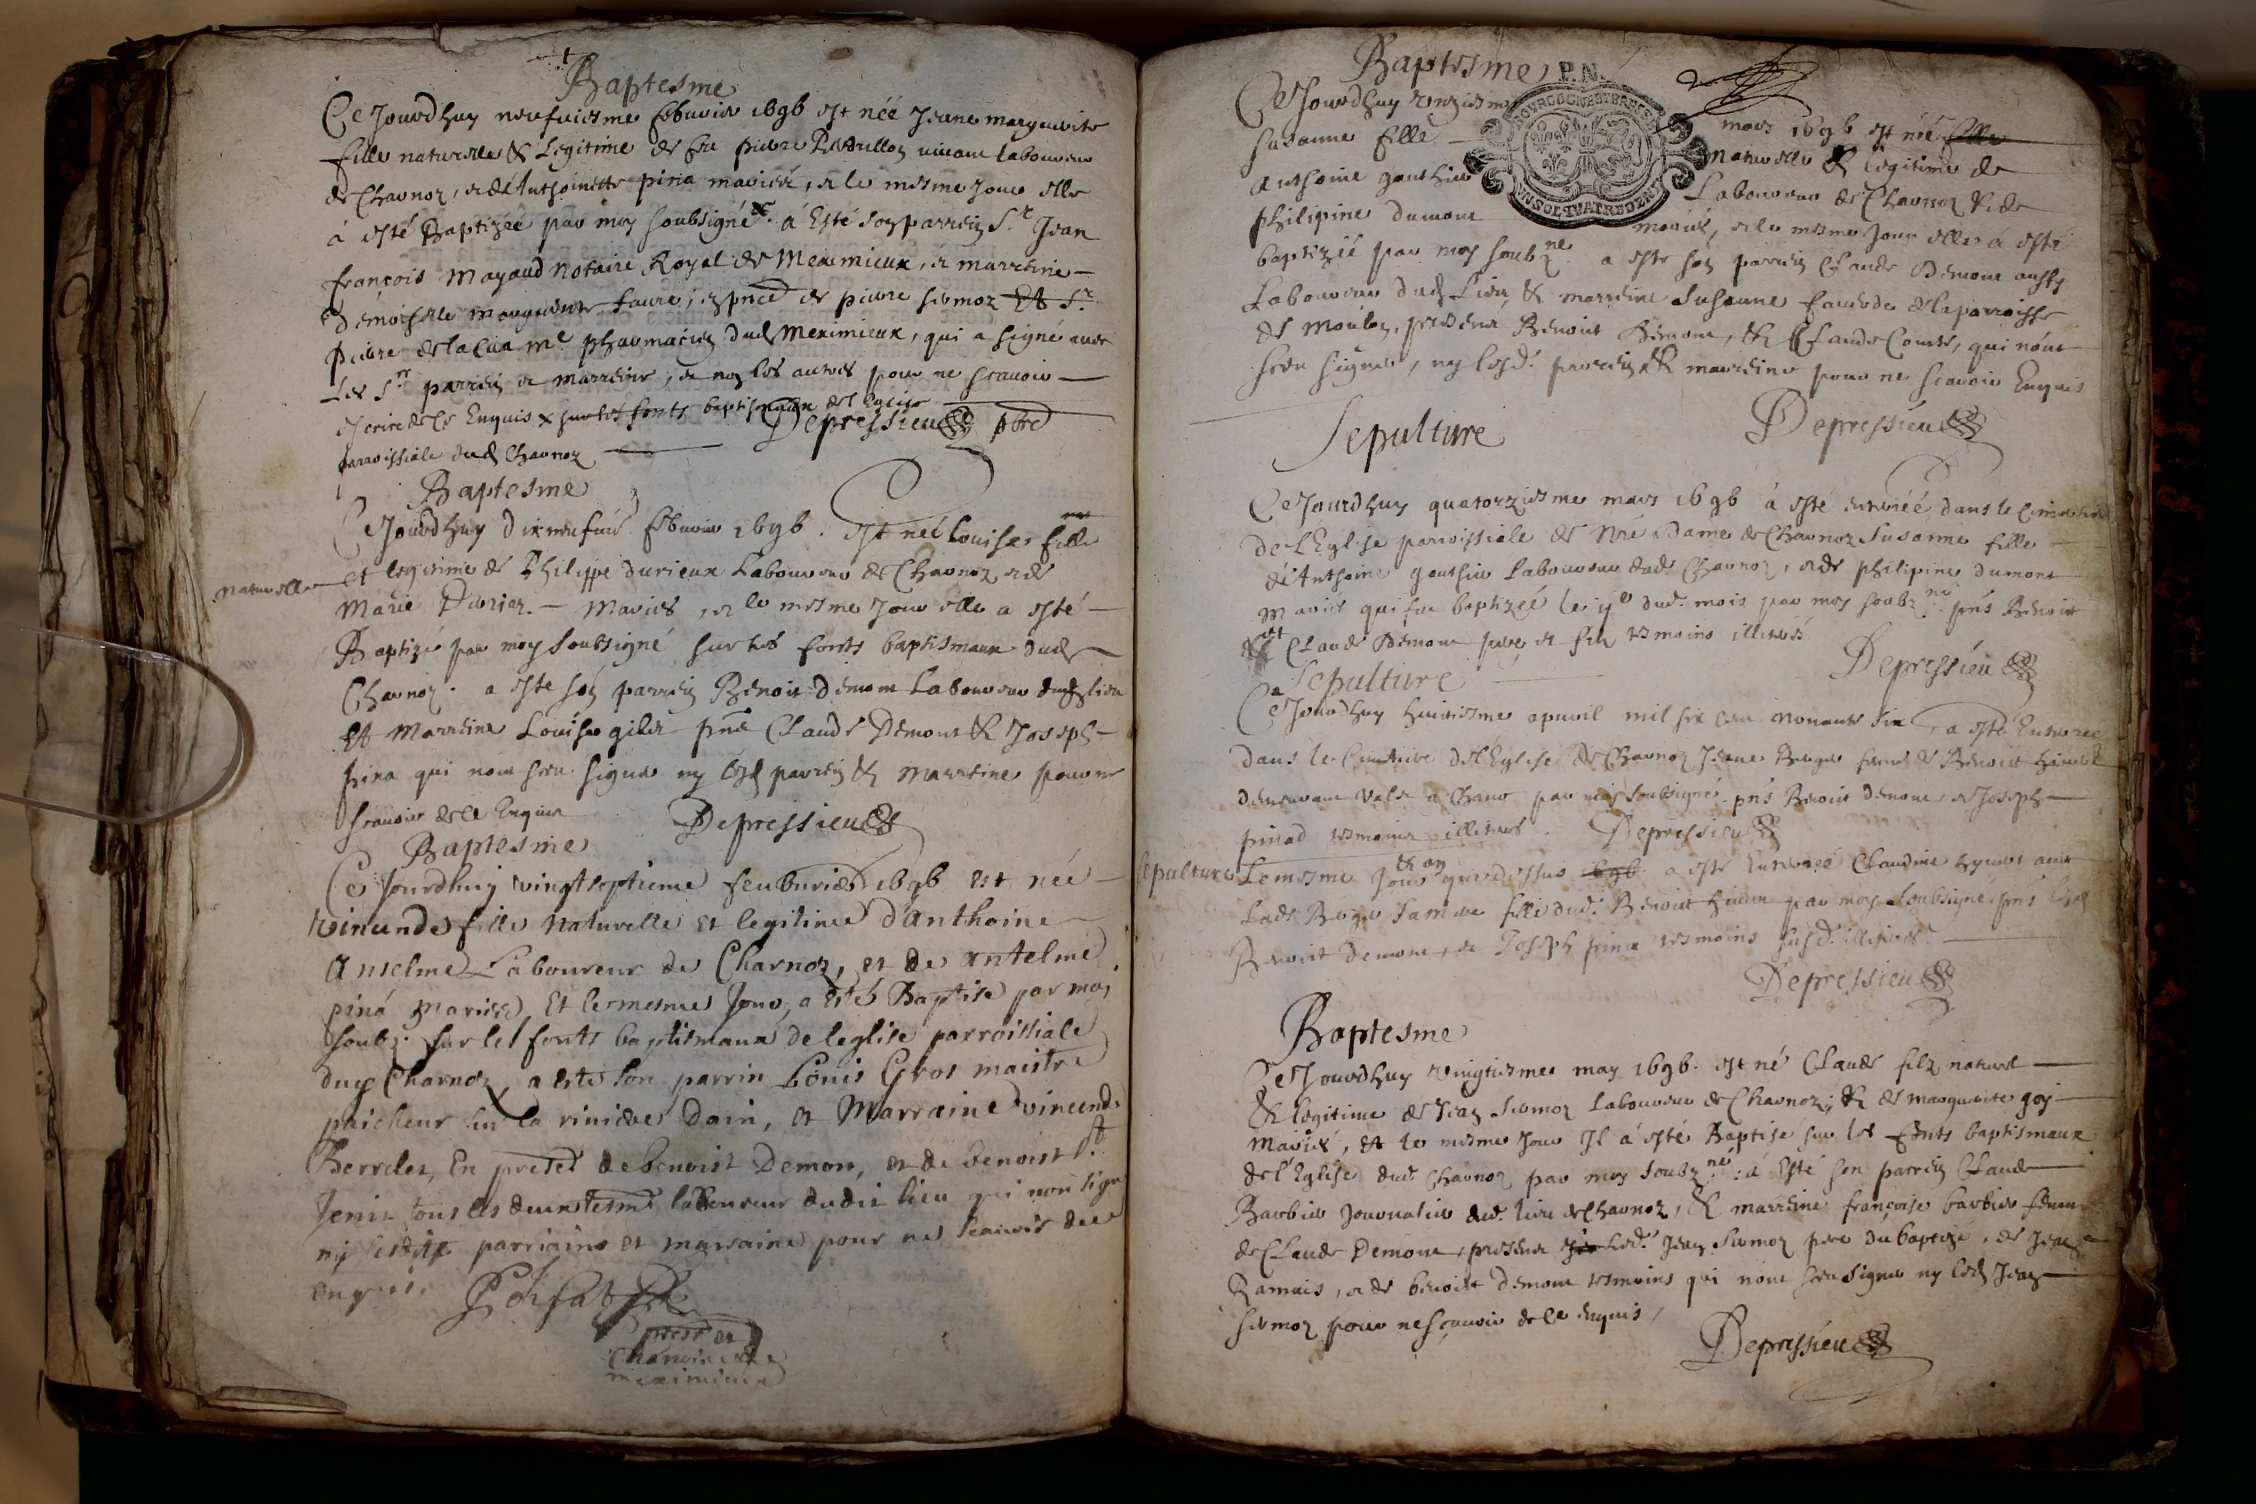 Baptesme
Ce Jourdhuy neufuiesme febvrier 1696 est née Jeane marguerite
fille naturelle & Legitime de feu pierre vivant Laboureur
de Charnoz, et de Anthoinette pina mariés, et le mesme jour elle
à esté Baptizée par moy soubsigné à Esté son parrein Sr Jean
françois Mayaud Notaire Royal de Meximieux, et marreine
démoiselle marguerite faure, en pnce de pierre sermoz Et Sr
pierre de la Cua me pharmacien dud Meximieux, qui a signé avec
Les Srs parrein et marreine, et non les autres pour ne scavoir
escrire de ce Enquis x sur les fonts baptismaux de l'Eglise
parroissiale dud Charnoz
Depressieu pbre
Baptesme
Ce Jourdhuy dixneufuie febvrier 1696. Est née Louise fille
naturelle et legitime de Philippe durieux Laboureur de Charnoz et de
Marie mariés, et le mesme jour elle a esté
Baptizé par moy soubsigné sur les fonts baptismaux dud
Charnoz. a esté son parrein Benoit démont Laboureur dud lieu
Et Marreine Louise pnce Claude Démont & Joseph
pina qui nont sceu signer ny lesd parrein & Marreine pour ne
scavoir de ce Enquis
Depressieu
Baptesme
Ce Jourdhuy vingtseptieme feuburier 1696 est née
fille Naturelle et legitime d'anthoine
Anselme Laboureur de Charnoz, et de antelme
pina Mariés, Et le mesme Jour, a esté Baptise par moy
soubz. sur les fonts baptismaux de leglise parroissiale
dud Charnoz, a esté son parrin Louis Gros maistre
paicheur sur la riviere Dain, et Marraine
En presce de benoist Demont, et de benoist St
Jenis tous les deux tesm laboureur dudit lieu qui nont signe
ny parriains et marraine pour ne scavoir de ce
enquis.
prestre
Chanoine de
meximieux
Baptesme
P.N.
BOURGOGNE ET BRESSE
Ce Jourdhuy onziesme mars 1696 est née
Susanne fille naturelle & legitime de
Anthoine gouthier Laboureur de Charnoz & de
philipine dumont mariés, et le mesme jour elle a esté
baptizée par moy soubzne a esté son parrein Claude Démont aussy
Laboureur dud Lieu & marreine Susanne de la parroisse
de présens Benoist Démont, & Claude Comte, qui nont
sceu signer, ny lesd. parrein & marreine pour ne scavoir Enquis
Depressieu
Sepulture
Ce Jourdhuy quatorziesme mars 1696 à esté enterréé dans le Cimetiere
de L'Eglise parroissiale de Nre Dame de Charnoz Susanne fille
de Anthoine gouthier Laboureur dud. Charnoz, et de philipine dumont
Mariés qui fut baptizée le dud. mois par moy soubzne. pns Benoit
et Claude Démont pere et fils tesmoins illiterés
Depressieu
Sepulture
Ce Jourdhuy huitiesme apuril mil six cens Nonante six, a esté Enterrée
dans le Cimetiere de l'Eglise de Charnoz Jeane femme de Benoit
demeurant a Charnoz par moy soubsigné. pns Benoit démont, et Joseph
pinad tesmoins illiterés.
Depressieu
Sepulture
Le mesme Jour & an que dessus 1696 a esté Enterreé Claudine
fille dud. Benoit par moy soubsigné pns lesd
Benoit demont, et Joseph pina tesmoins susd. illiterés
Depressieu
Baptesme
Ce Jourdhuy vingtiesme may 1696. est né Claude filz naturel
& legitime de Jean Sermoz Laboureur de Charnoz, & de marguerite goy
Mariés, et le mesme jour Il à esté Baptise sur les fonts baptismaux
de l'Eglise dud. Charnoz par moy soubzné: à Esté son parrein Claude
Barbier Journalier dud. lieu de Charnoz, & marreine françoise barbier femme
de Claude Demont, présens Led. Jean Sermoz pere du baptizé, de Jean
Ramuis, et de benoist démont tesmoins qui nont sceu signer ny led Jean
sermoz pour ne scavoir de ce enquis,
Depressieu